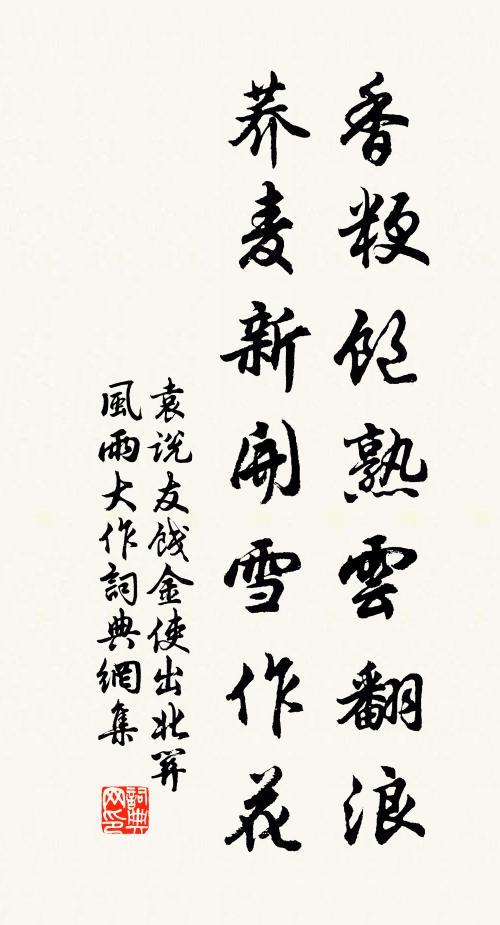 香粳飽熟雲翻浪
荞麦新開雪作花
袁说友饯金使出北関
風雨大作詞典網集
詞典网印